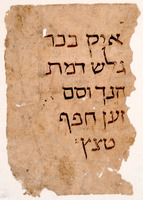 איק בכר
גלש דמת
הנך וסם
זען חפף
טצץ׃